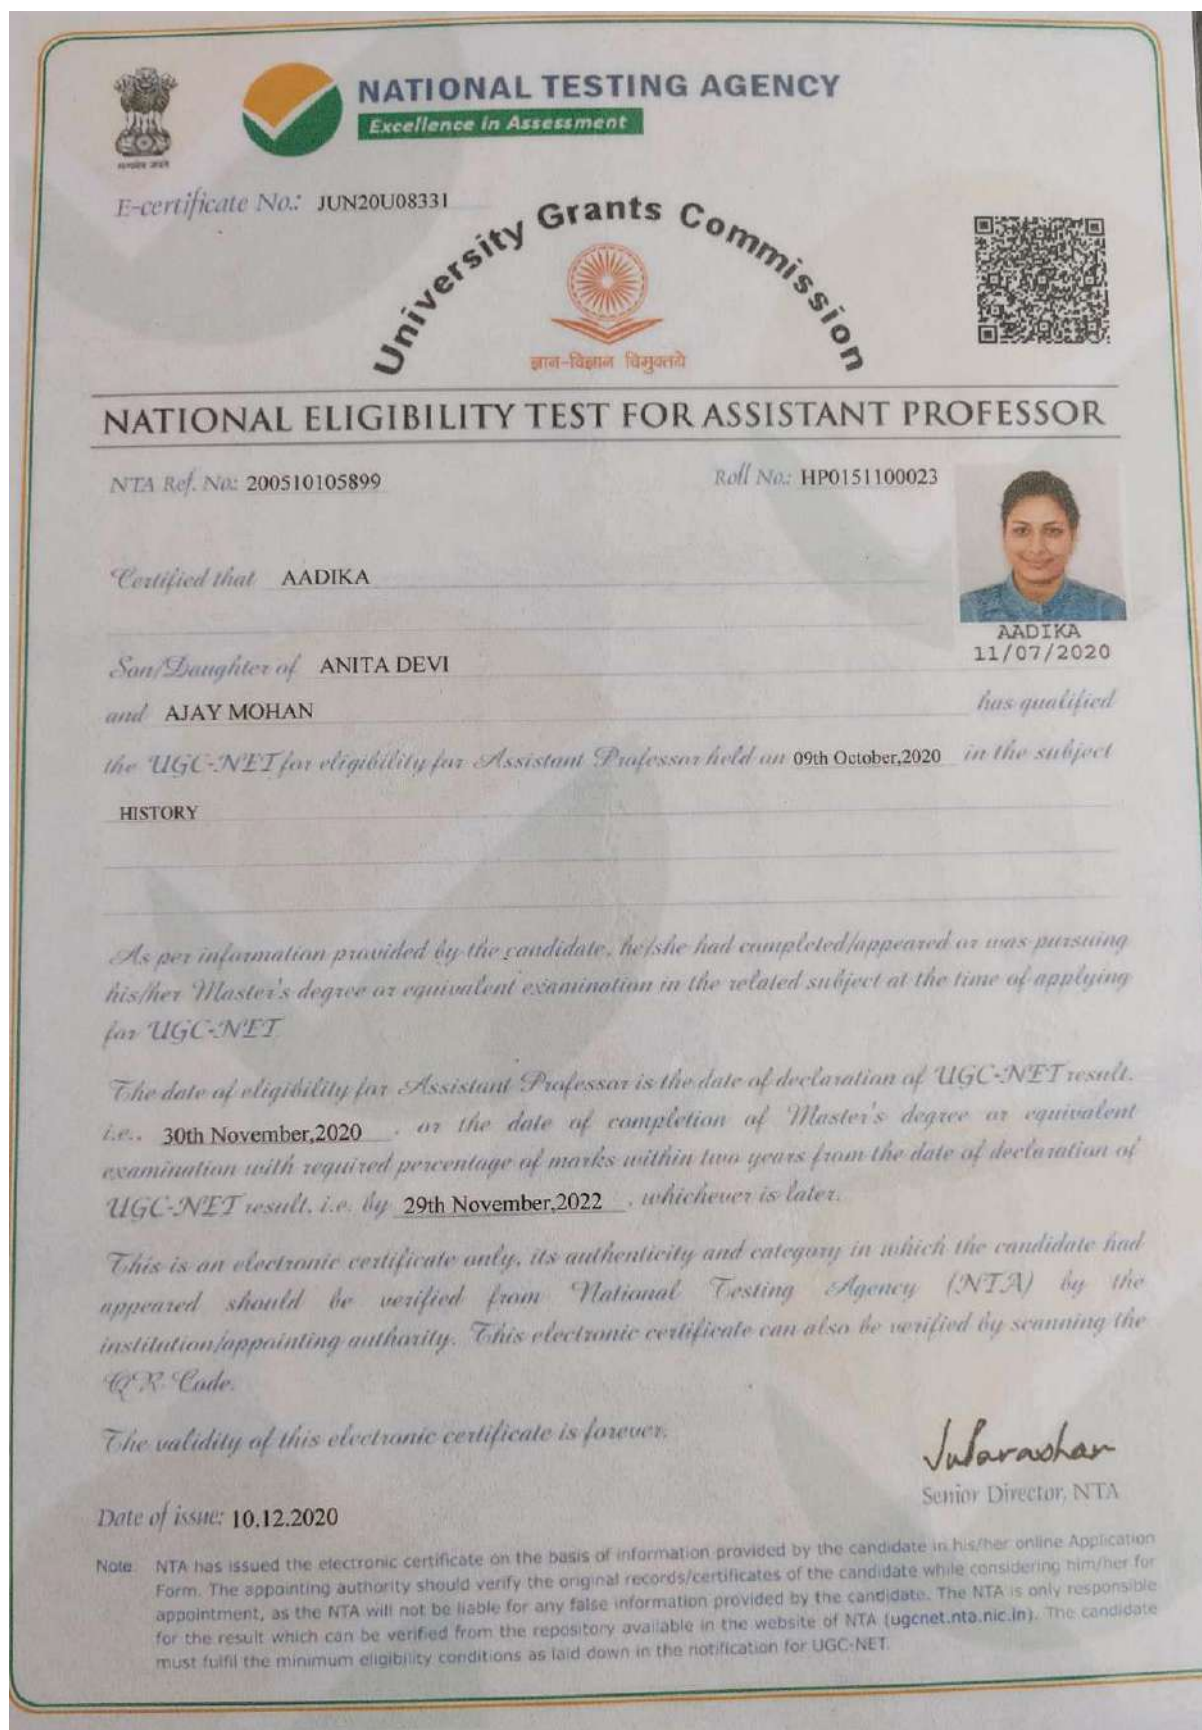 NATIONAL TESTING AGENCY
Excellence in Assessment
सत्यमेव जयते
E-certificate No.: JUN20U08331
University Grants Commission
ज्ञान-विज्ञान विमुक्तये
NATIONAL ELIGIBILITY TEST FOR ASSISTANT PROFESSOR
NTA Ref. No: 200510105899 Roll No.: HP0151100023
Certified that AADIKA
AADIKA
11/07/2020
Son/Daughter of ANITA DEVI
and AJAY MOHAN has qualified
the UGC-NET for eligibility for Assistant Professor held on 09th October,2020 in the subject
HISTORY
As per information provided by the candidate, he/she had completed/appeared or was pursuing
his/her Master's degree or equivalent examination in the related subject at the time of applying
for UGC-NET
The date of eligibility for Assistant Professor is the date of declaration of UGC-NET result,
i.e., 30th November,2020 , or the date of completion of Master's degree or equivalent
examination with required percentage of marks within two years from the date of declaration of
UGC-NET result, i.e. by 29th November,2022 , whichever is later.
This is an electronic certificate only, its authenticity and category in which the candidate had
appeared should be verified from National Testing Agency (NTA) by the
institution/appointing authority. This electronic certificate can also be verified by scanning the
QR Code.
The validity of this electronic certificate is forever.
Senior Director, NTA
Date of issue: 10.12.2020
Note: NTA has issued the electronic certificate on the basis of information provided by the candidate in his/her online Application
Form. The appointing authority should verify the original records/certificates of the candidate while considering him/her for
appointment, as the NTA will not be liable for any false information provided by the candidate. The NTA is only responsible
for the result which can be verified from the repository available in the website of NTA (ugcnet.nta.nic.in). The candidate
must fulfil the minimum eligibility conditions as laid down in the notification for UGC-NET.